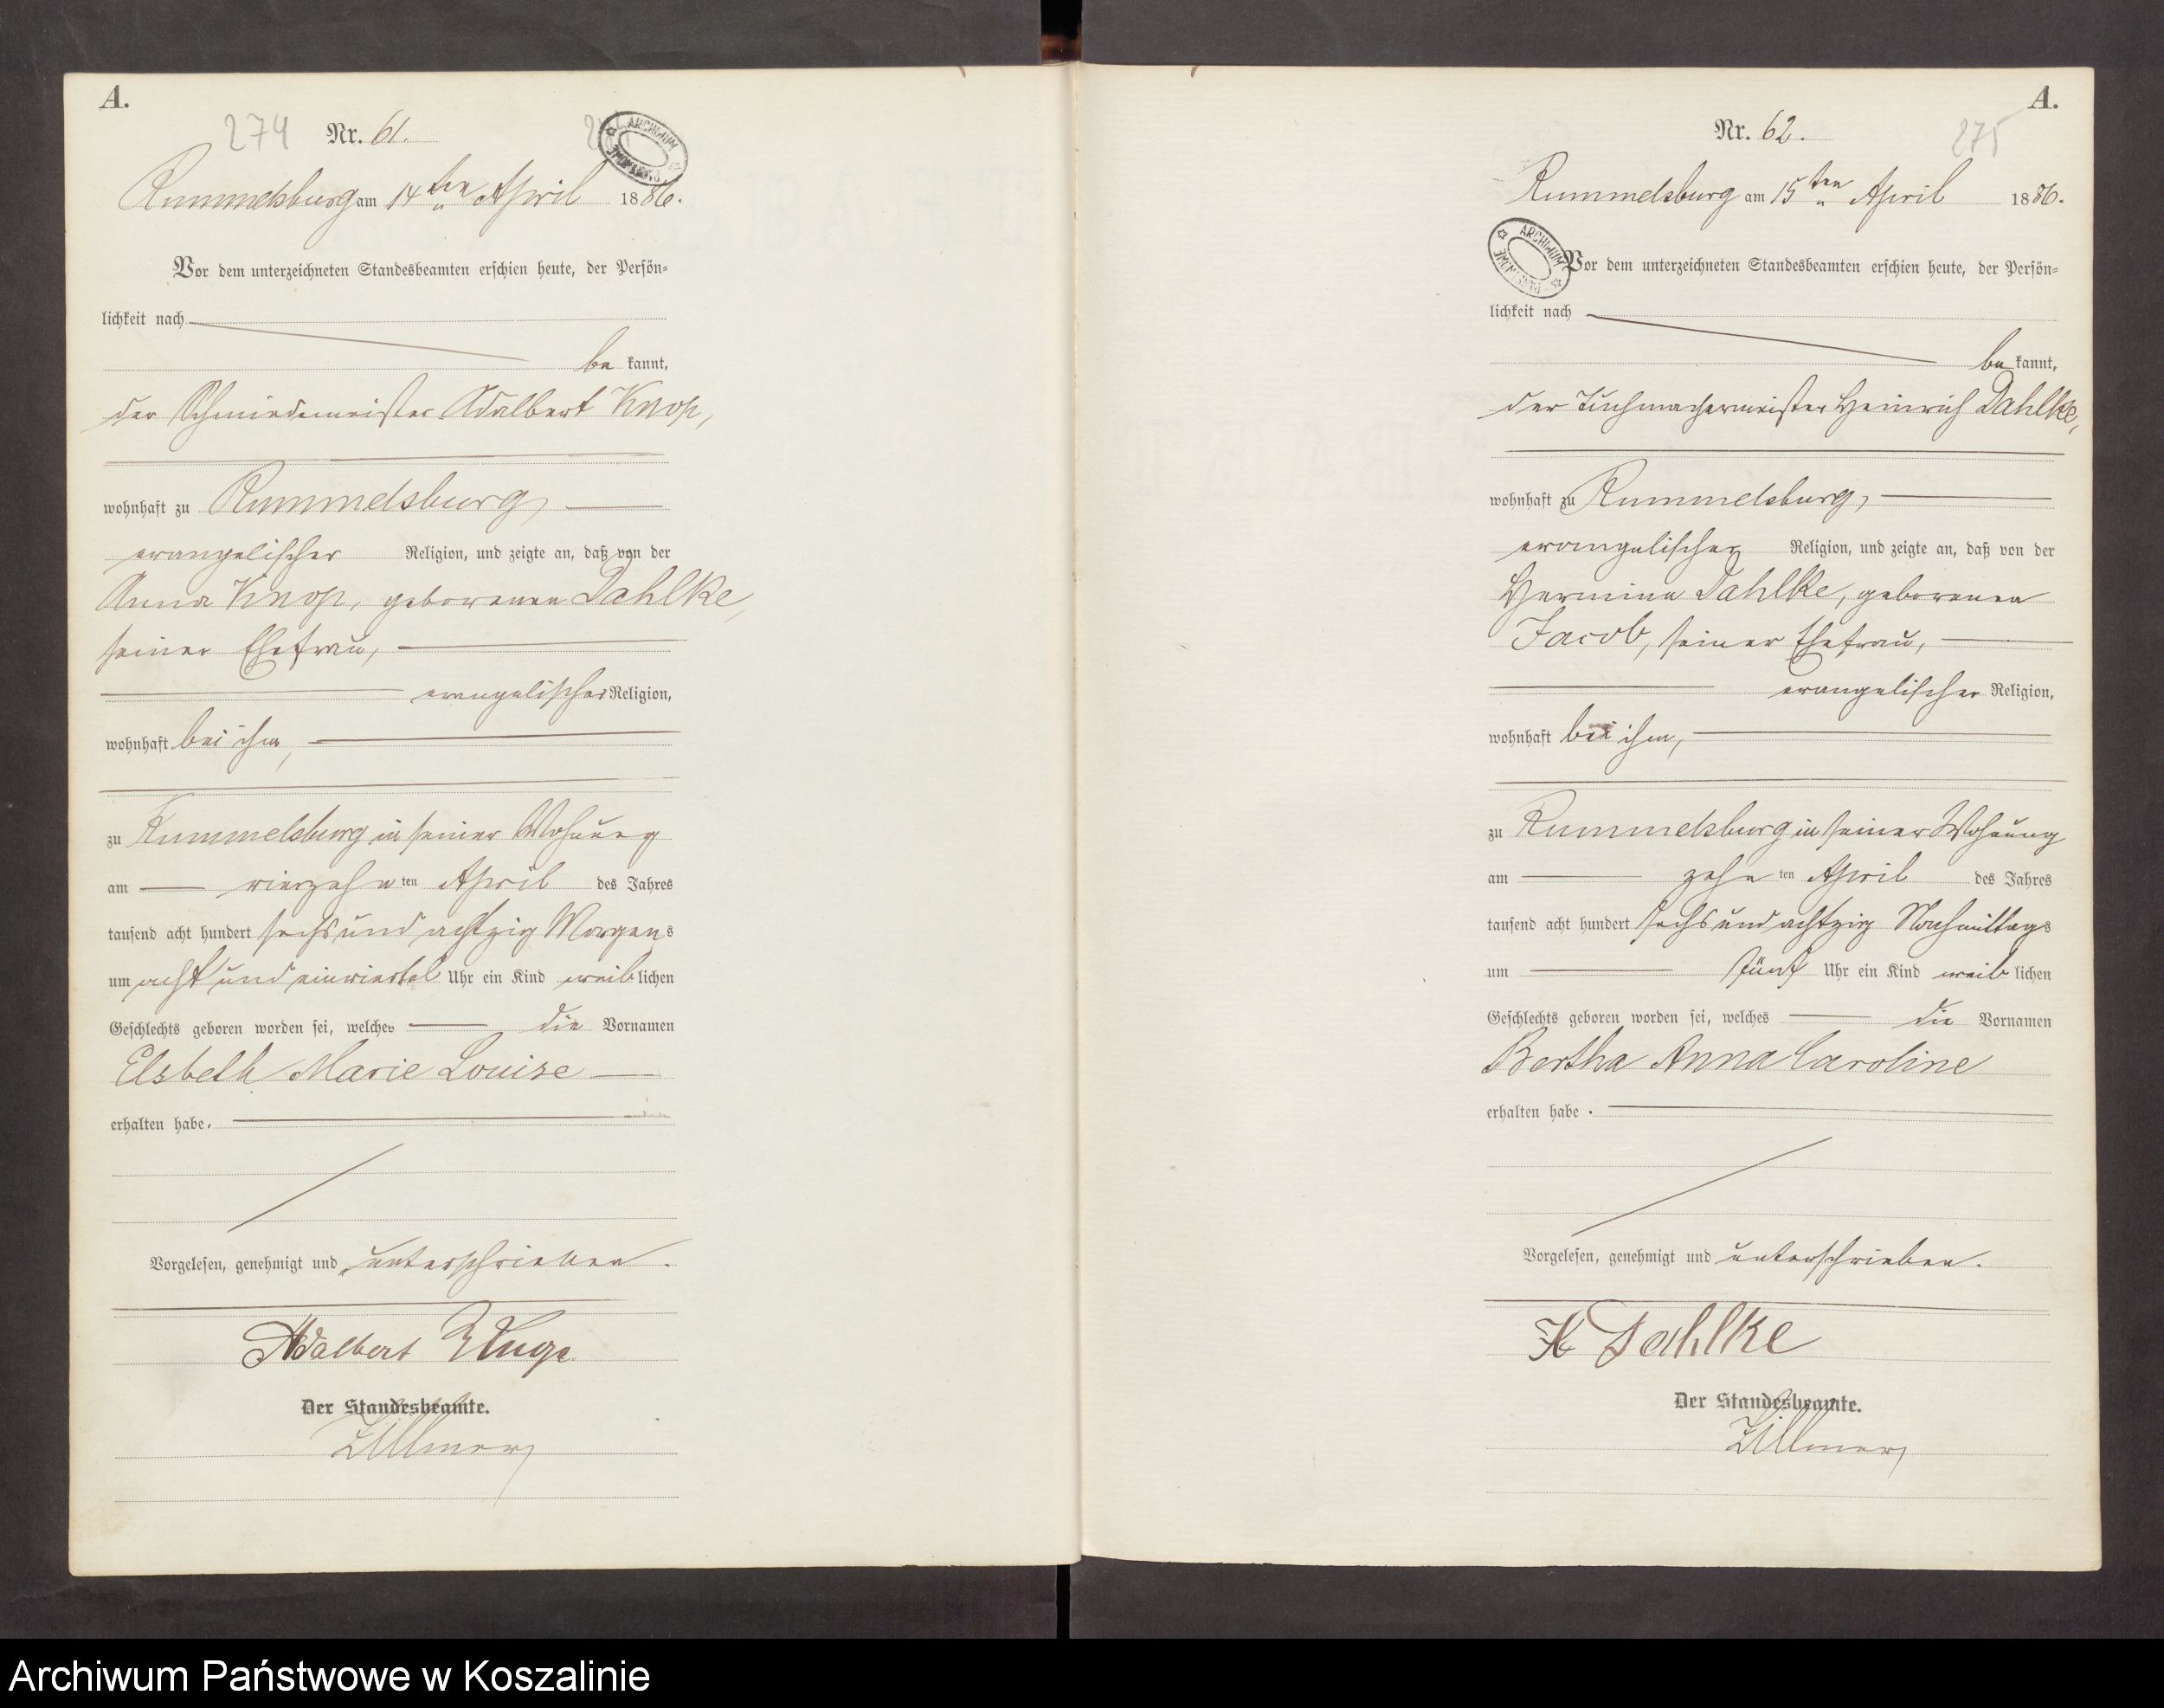 A.
274
Nr. 61.
ARCHIWUM
PAŃSTWOWE
Rummelsburg am 14ten April 1886.
Vor dem unterzeichneten Standesbeamten erschien heute, der Persön=
lichkeit nach
be kannt,
der Schmiedemeister Adalbert Knop,
wohnhaft zu Rummelsburg,
evangelischer Religion, und zeigte an, daß von der
Anna Knop, geborenen Dahlke,
seiner Ehefrau,
evangelischer Religion,
wohnhaft bei ihm,
zu Rummelsburg in seiner Wohnung
am vierzehn ten April des Jahres
tausend acht hundert sechs und achtzig Morgens
um acht und einviertel Uhr ein Kind weib lichen
Geschlechts geboren worden sei, welches die Vornamen
Elsbeth Marie Louise
erhalten habe.
Vorgelesen, genehmigt und unterschrieben.
Adalbert
Der Standesbeamte.
Zillmer
A.
Nr. 62.
275
Rummelsburg am 15ten April 1886.
ARCHIWUM
PAŃSTWOWE
Vor dem unterzeichneten Standesbeamten erschien heute, der Persön=
lichkeit nach
be kannt,
der Tuchmachermeister Heinrich Dahlke,
wohnhaft zu Rummelsburg,
evangelischer Religion, und zeigte an, daß von der
Hermine Dahlke, geborenen
Jacob, seiner Ehefrau,
evangelischer Religion,
wohnhaft bei ihm,
zu Rummelsburg in seiner Wohnung
am zehn ten April des Jahres
tausend acht hundert sechs und achtzig Nachmittags
um fünf Uhr ein Kind weib lichen
Geschlechts geboren worden sei, welches die Vornamen
Bertha Anna Caroline
erhalten habe.
Vorgelesen, genehmigt und unterschrieben.
H Dahlke
Der Standesbeamte.
Zillmer
Archiwum Państwowe w Koszalinie